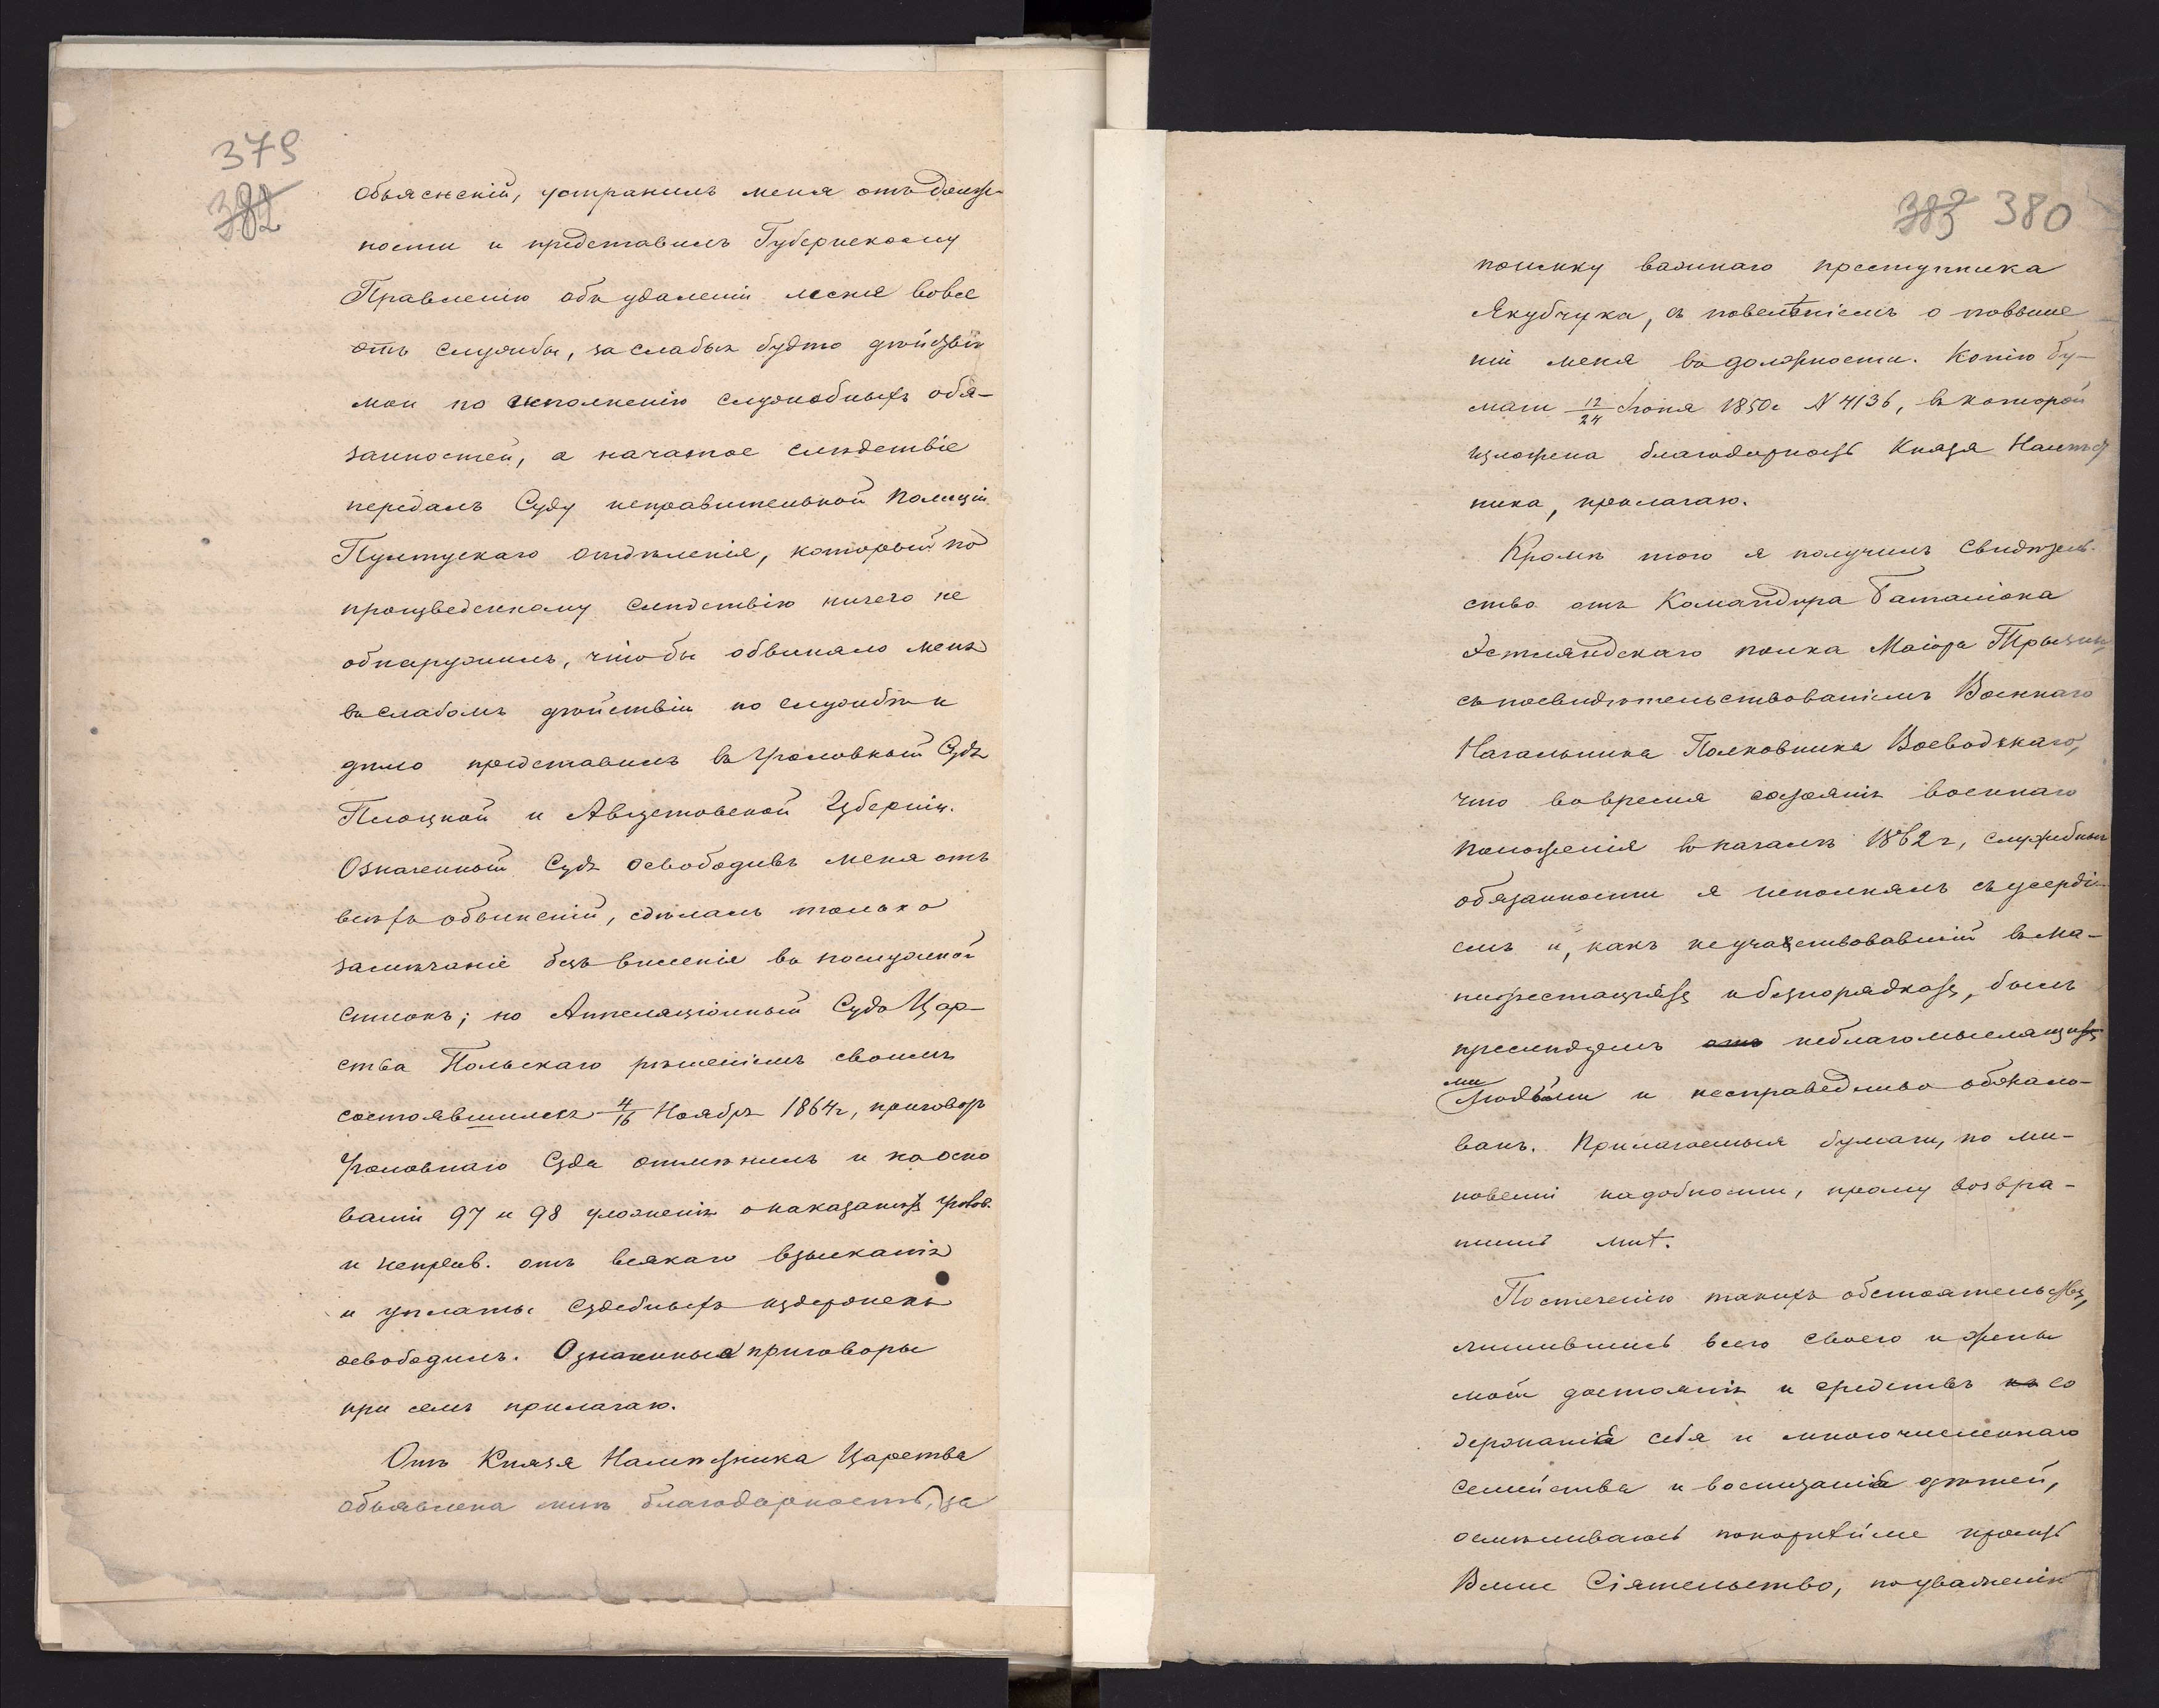 379
382
объясненій, устранилъ меня отъ долж-
ности и представилъ Губернскому
Правленію объ удаленіи меня вовсе
отъ службы, за слабыя будто дѣйствія
мои по исполненію служебныхъ обя-
занностей, а начатое слѣдствіе
передалъ Суду исправительной Полиціи
Пултускаго отдѣленія, который по
произведенному слѣдствію ничего не
обнаружилъ, чтобы обвиняло меня
въ слабомъ дѣйствіи по службѣ и
дѣло представилъ въ Уголовный Судъ
Плоцкой и Августовской Губерніи.
Означенный Судъ освободивъ меня отъ
всѣхъ обвиненій, сдѣлалъ только
замѣчаніе безъ внесенія въ послужной
списокъ; но Аппеляціонный Судъ Цар-
ства Польскаго рѣшеніемъ своимъ
состоявшимся 4/16 Ноября 1864 г, приговоръ
Уголовнаго Суда отмѣнилъ и на осно
ваніи 97 и 98 уложенія о наказаніяхъ уголов.
и исправ. отъ всякаго взысканія
и уплаты судебныхъ издержекъ
освободилъ. Означенные приговоры
при семъ прилагаю.
Отъ Князя Намѣстника Царства
объявлена мнѣ благодарность, за
383 380
поимку важнаго преступника
Якубчука, съ повелѣніемъ о повыше
ніи меня въ должности. Копію бу-
маги 12/24 Іюня 1850 г N 4136, въ которой
изложена благодарность Князя Намѣст
ника, прилагаю.
Кромѣ того я получилъ свидѣтель-
ство отъ Командира Баталіона
Эстляндскаго полка Маіора
съ посвидѣтельствованіемъ Военнаго
Начальника Полковника Воеводскаго,
что во время состоянія военнаго
положенія въ началѣ 1862 г, служебныя
обязанности я исполнялъ съ усерді-
емъ и, какъ не участвовавшій въ ма-
нифестаціяхъ и безпорядкахъ, былъ
преслѣдуемъ отъ неблагомыслящихъ
ми
людьми и несправедливо обжало-
ванъ. Прилагаемыя бумаги, по ми-
новеніи надобности, прошу возвра-
тить мнѣ.
По стеченію такихъ обстоятельствъ,
лишившись всего своего и жены
моей достоянія и средствъ къ со
держанія себя и многочисленнаго
семейства и воспитанія дѣтей,
осмѣливаюсь покорнѣйше просить
Ваше Сіятельство, по уваженію